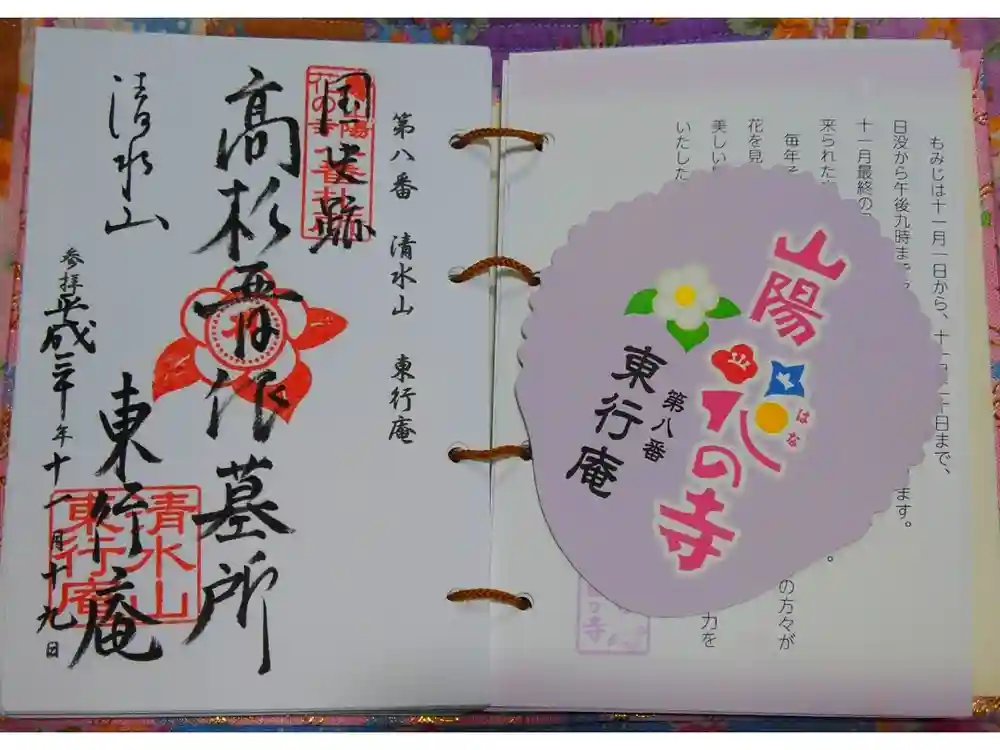 もみじは十一月一日から、十
十日まで、
日没から午後九時ま
ます。
十一月最終の
来られた
毎年
の方々が
花を見
美しい
力を
いたした
山陽
花の寺
はな
第八番
東行庵
の寺
第八番 清水山 東行庵
国史跡
高杉晋作墓所
東行庵
清水山
参拝
平成三十年十一月十九日
清水山
東行庵